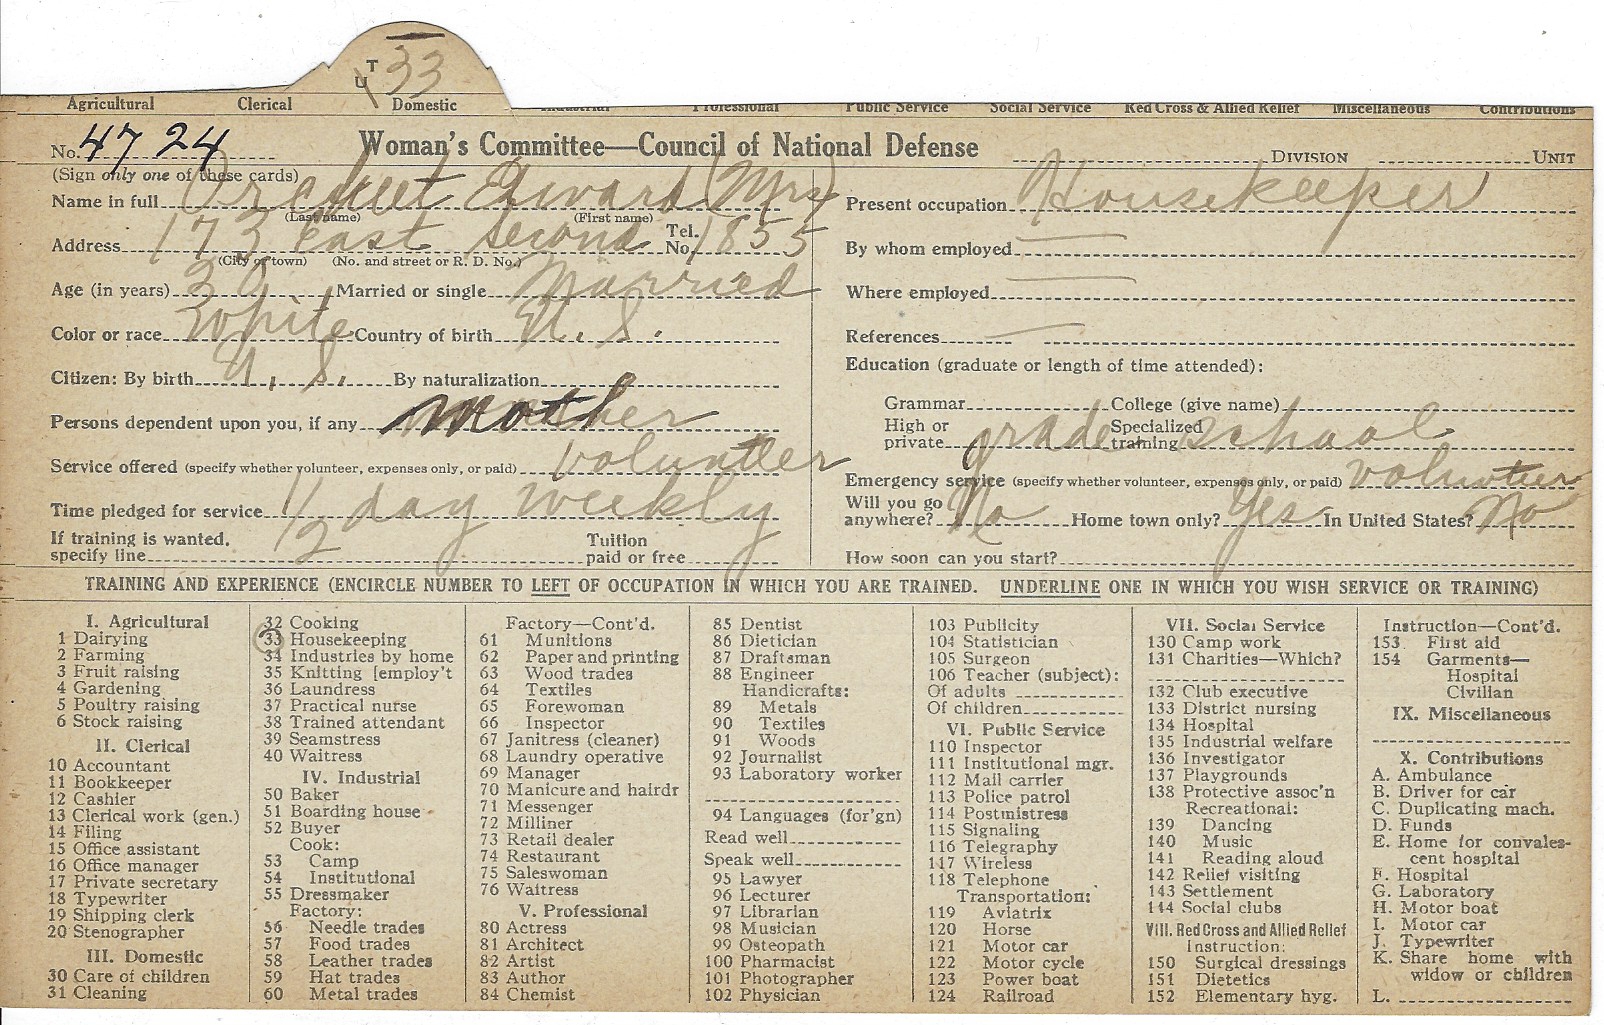 T 33
U
Agricultural Clerical Domestic Industrial Professional Public Service Social Service Red Cross & Allied Relief Miscellaneous Contributions
No. 4724 Woman's Committee—Council of National Defense DIVISION UNIT
(Sign only one of these cards)
Name in full Edward (Mrs)
(Last name) (First name)
Address 173 east second Tel. No. 1855
(City or town) (No. and street or R. D. No.)
Age (in years) 39 Married or single Married
Color or race White Country of birth U. S.
Citizen: By birth U. S. By naturalization
Persons dependent upon you, if any mother
Service offered (specify whether volunteer, expenses only, or paid) volunteer
Time pledged for service 1/2 day weekly
If training is wanted, specify line Tuition paid or free
Present occupation Housekeeper
By whom employed
Where employed
References
Education (graduate or length of time attended):
Grammar College (give name)
High or private grade Specialized training school
Emergency service (specify whether volunteer, expenses only, or paid) volunteer
Will you go anywhere? No Home town only? Yes In United States? No
How soon can you start?
TRAINING AND EXPERIENCE (ENCIRCLE NUMBER TO LEFT OF OCCUPATION IN WHICH YOU ARE TRAINED. UNDERLINE ONE IN WHICH YOU WISH SERVICE OR TRAINING)
I. Agricultural
1 Dairying
2 Farming
3 Fruit raising
4 Gardening
5 Poultry raising
6 Stock raising
II. Clerical
10 Accountant
11 Bookkeeper
12 Cashier
13 Clerical work (gen.)
14 Filing
15 Office assistant
16 Office manager
17 Private secretary
18 Typewriter
19 Shipping clerk
20 Stenographer
III. Domestic
30 Care of children
31 Cleaning
32 Cooking
33 Housekeeping
34 Industries by home
35 Knitting [employ't
36 Laundress
37 Practical nurse
38 Trained attendant
39 Seamstress
40 Waitress
IV. Industrial
50 Baker
51 Boarding house
52 Buyer
Cook:
53 Camp
54 Institutional
55 Dressmaker
Factory:
56 Needle trades
57 Food trades
58 Leather trades
59 Hat trades
60 Metal trades
Factory—Cont'd.
61 Munitions
62 Paper and printing
63 Wood trades
64 Textiles
65 Forewoman
66 Inspector
67 Janitress (cleaner)
68 Laundry operative
69 Manager
70 Manicure and hairdr
71 Messenger
72 Milliner
73 Retail dealer
74 Restaurant
75 Saleswoman
76 Waitress
V. Professional
80 Actress
81 Architect
82 Artist
83 Author
84 Chemist
85 Dentist
86 Dietician
87 Draftsman
88 Engineer
Handicrafts:
89 Metals
90 Textiles
91 Woods
92 Journalist
93 Laboratory worker
94 Languages (for'gn)
Read well
Speak well
95 Lawyer
96 Lecturer
97 Librarian
98 Musician
99 Osteopath
100 Pharmacist
101 Photographer
102 Physician
103 Publicity
104 Statistician
105 Surgeon
106 Teacher (subject):
Of adults
Of children
VI. Public Service
110 Inspector
111 Institutional mgr.
112 Mail carrier
113 Police patrol
114 Postmistress
115 Signaling
116 Telegraphy
117 Wireless
118 Telephone
Transportation:
119 Aviatrix
120 Horse
121 Motor car
122 Motor cycle
123 Power boat
124 Railroad
VII. Social Service
130 Camp work
131 Charities—Which?
132 Club executive
133 District nursing
134 Hospital
135 Industrial welfare
136 Investigator
137 Playgrounds
138 Protective assoc'n
Recreational:
139 Dancing
140 Music
141 Reading aloud
142 Relief visiting
143 Settlement
144 Social clubs
VIII. Red Cross and Allied Relief
Instruction:
150 Surgical dressings
151 Dietetics
152 Elementary hyg.
Instruction—Cont'd.
153 First aid
154 Garments—
Hospital
Civilian
IX. Miscellaneous
X. Contributions
A. Ambulance
B. Driver for car
C. Duplicating mach.
D. Funds
E. Home for convales-
cent hospital
F. Hospital
G. Laboratory
H. Motor boat
I. Motor car
J. Typewriter
K. Share home with
widow or children
L.